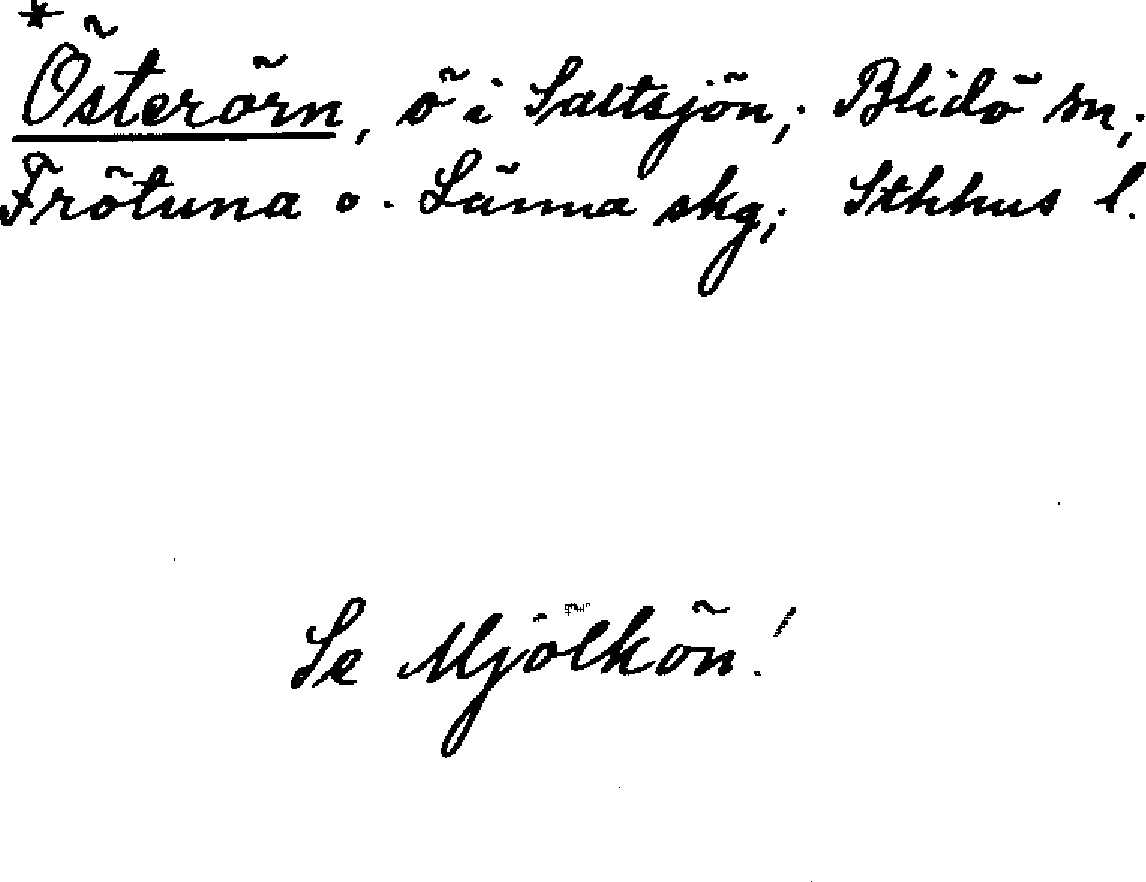 * Österörn, ö i Saltsjön; Blidö sn;
Frötuna o. Länna skg; Sthhus l.
Se Mjölkön!